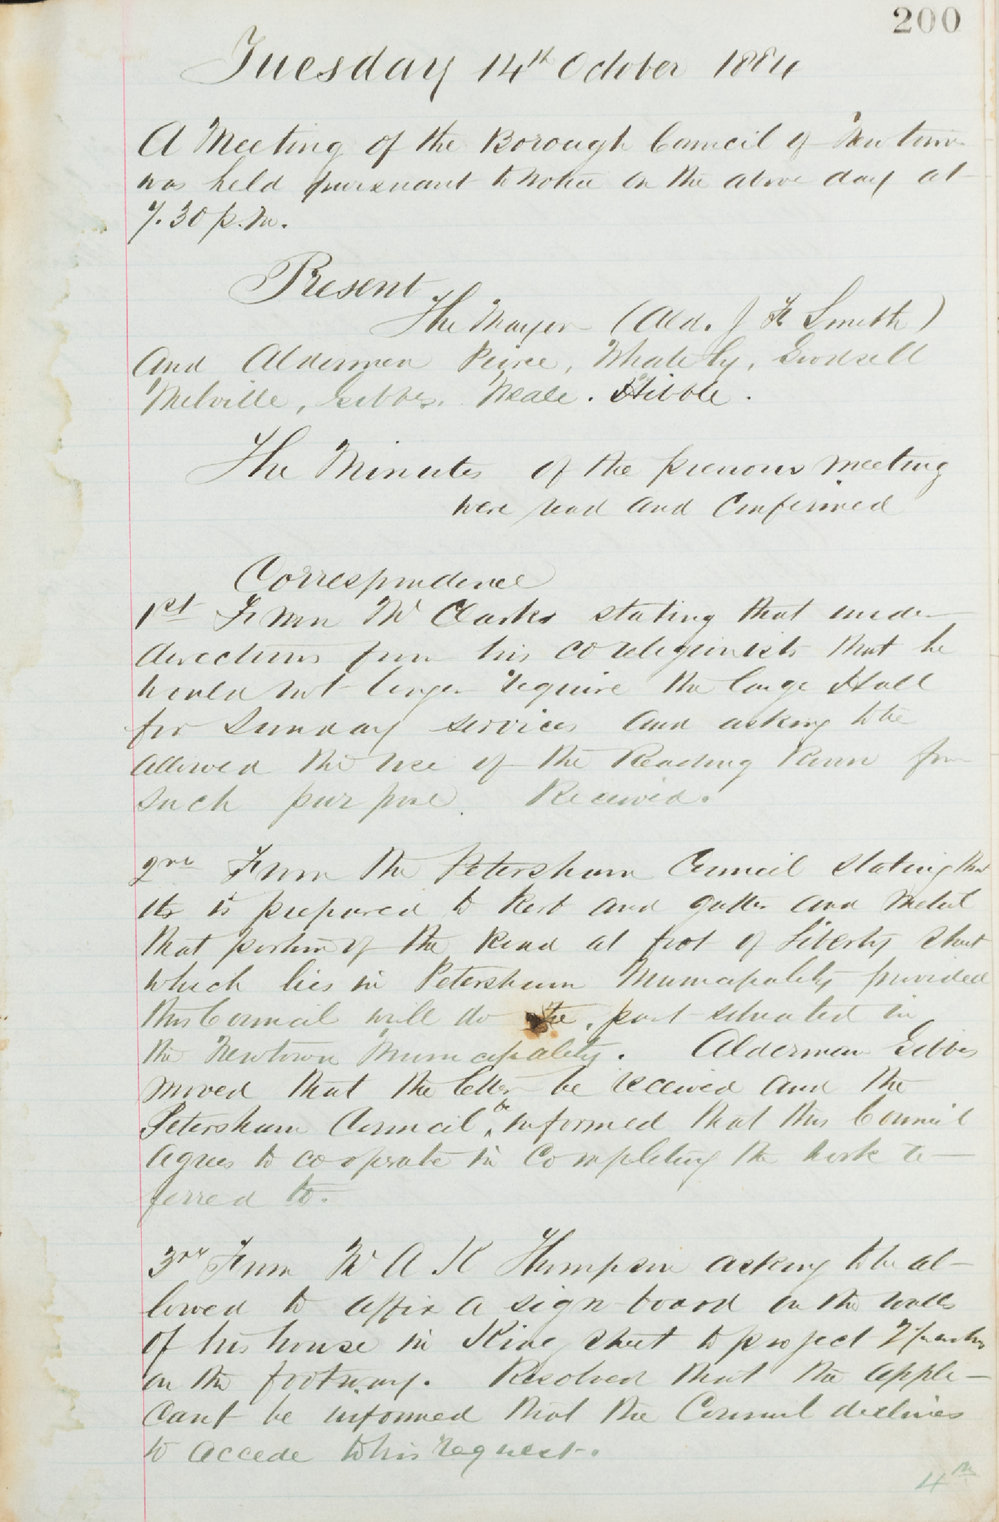 200
Tuesday 14th October 1884
A Meeting of the Borough Council of Newtown
was held pursuant to notice on the above day at
7.30 p.m.
Present
The Mayor (Ald. J F Smith)
and Aldermen Peirce, Whately, Goodsell
Melville, Gibbes, Neale. Hibble.
The Minutes of the previous meeting
were read and Confirmed
Correspondence
1st From Mr Clarke stating that under
directions from his coreligionists that he
would not longer require the large Hall
for Sunday services and asking to be
allowed the use of the Reading Room for
such purpose. Received.
2nd From the Petersham Council stating that
its is prepared to Kerb and gutter and Metal
that portion of the Road at foot of Liberty Street
which lies in Petersham Municipality provided
this Council will do the part situated in
the Newtown Municipality. Alderman Gibbes
moved that the letter be received and the
Petersham Council be informed that this Council
agrees to cooperate in Completing the work re-
ferred to.
3rd From Mr A K Thompson asking to be al-
lowed to affix a sign board on the walls
of his house in King street to project
on the footway. Resolved that the appli-
cant be informed that the Council declines
to accede to his request.
4th